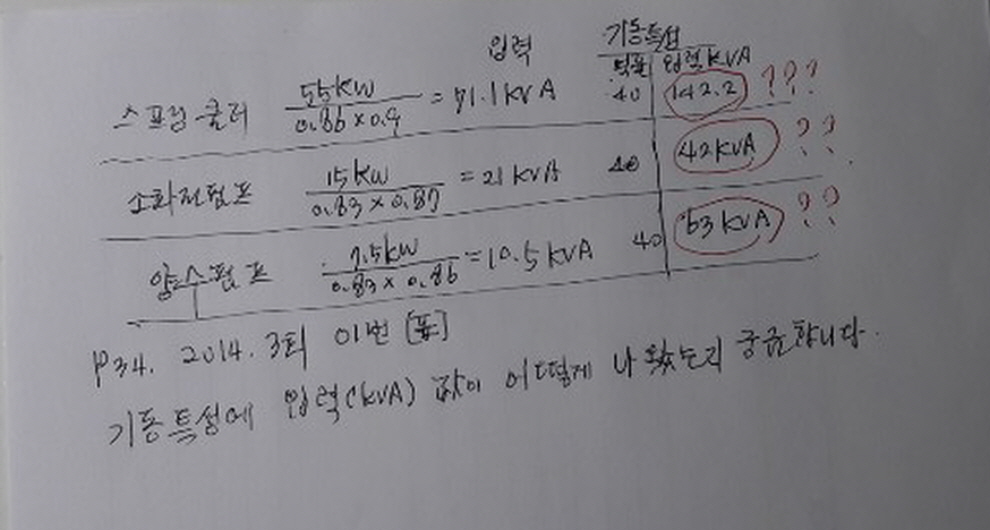 입력 기동특성
역률 입력 KVA
스프링쿨러 55KW / 0.86 × 0.9 = 71.1 KVA 40 142.2 ???
소화전펌프 15KW / 0.83 × 0.87 = 21 KVA 40 42KVA ??
양수펌프 7.5KW / 0.83 × 0.86 = 10.5 KVA 40 63 KVA ??
P34. 2014. 3회 01번 [표]
기동특성에 입력(KVA) 값이 어떻게 나왔는지 궁금합니다.